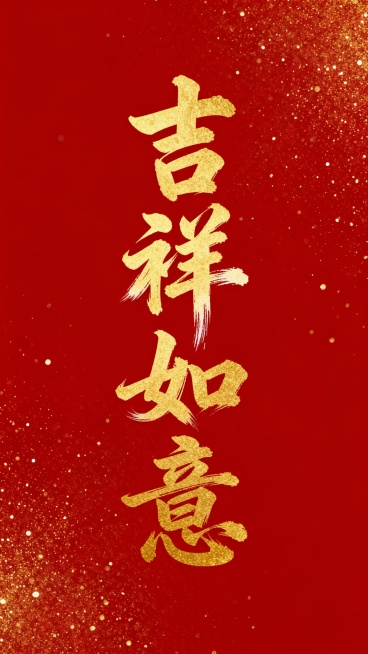 吉祥如意